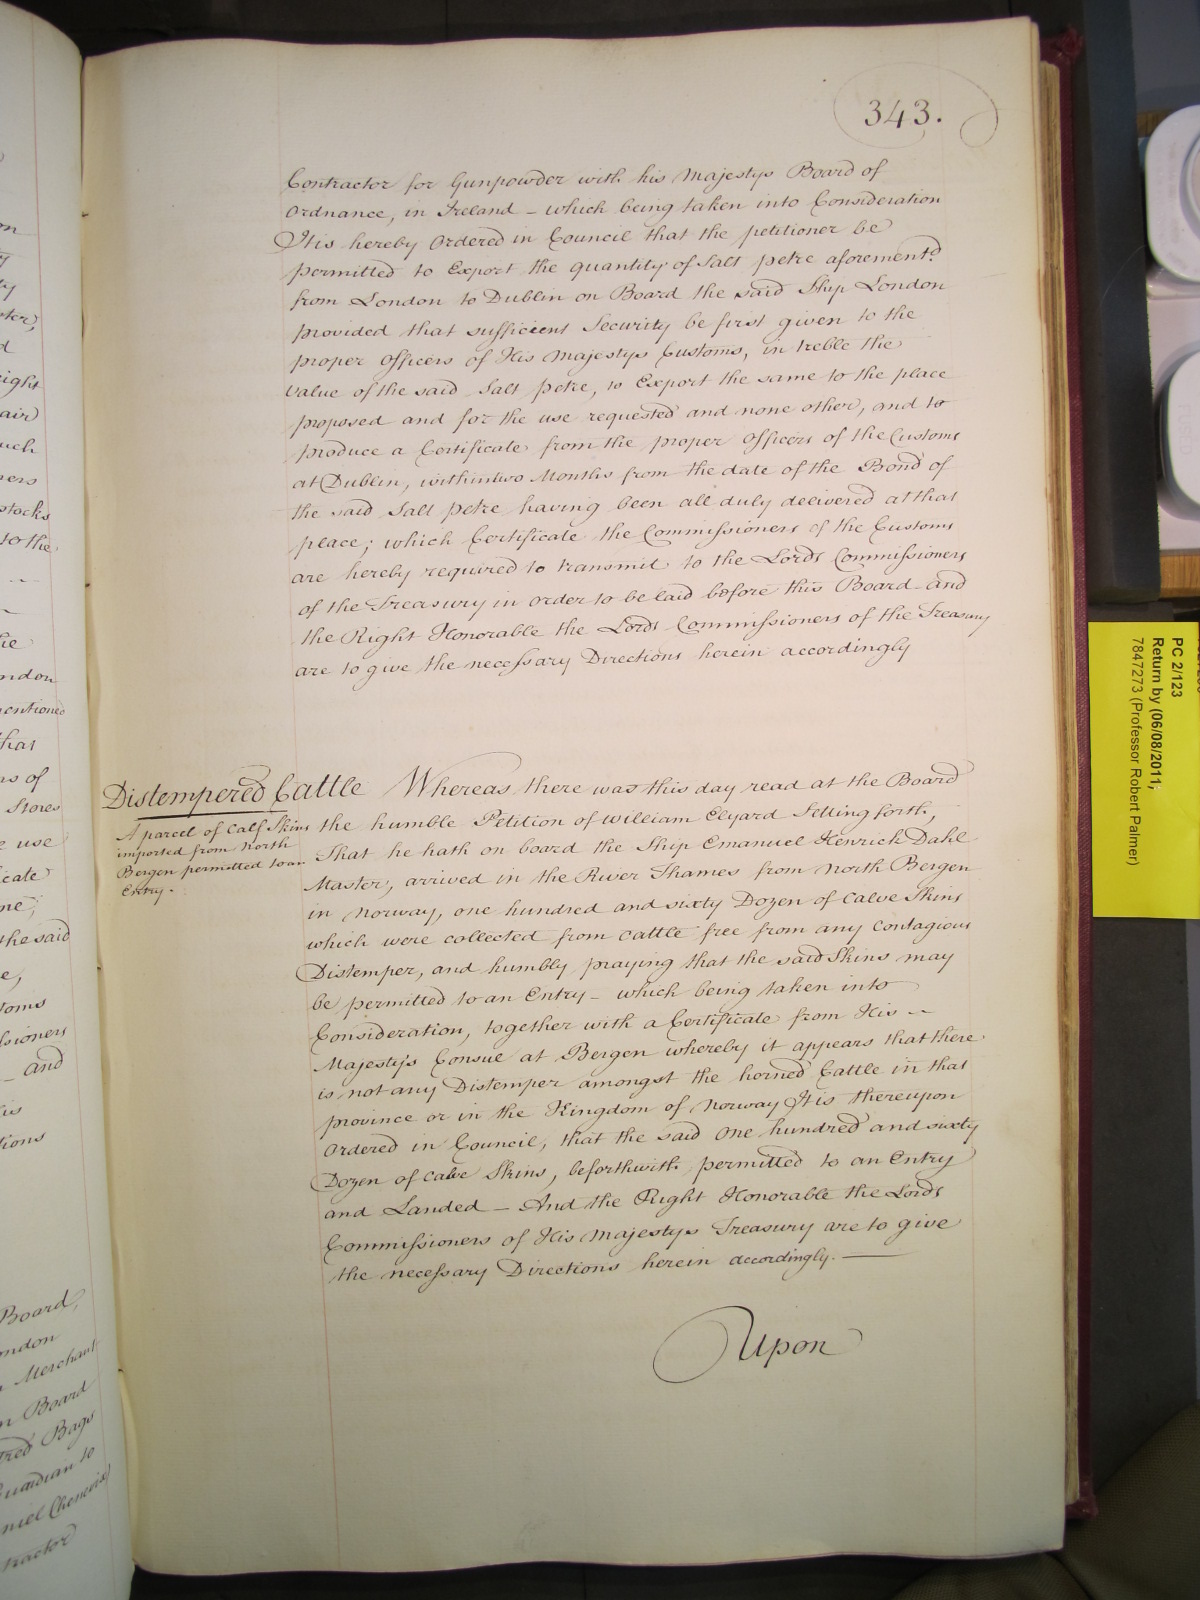 343.
Contractor for Gunpowder with his Majestys Board of
Ordnance, in Ireland – which being taken into Consideration
It is hereby Ordered in Council that the petitioner be
permitted to Export the quantity of Salt petre aforement.d
from London to Dublin on Board the said Ship London
provided that sufficient Security be first given to the
proper Officers of His Majestys Customs, in treble the
value of the said Salt petre, to Export the same to the place
proposed and for the use requested and none other, and to
produce a Certificate from the proper Officers of the Customs
at Dublin, within two Months from the date of the Bond of
the said Salt petre having been all duly delivered at that
place; which Certificate the Commissioners of the Customs
are hereby required to transmit to the Lords Commissioners
of the Treasury in order to be laid before this Board – and
the Right Honorable the Lords Commissioners of the Treasury
are to give the necessary Directions herein accordingly
Distempered Cattle
A parcel of Calf Skins
imported from North
Bergen permitted to an
Entry.
Whereas there was this day read at the Board
the humble Petition of William Elyard Setting forth,
That he hath on board the Ship Emanuel Henrick Dahl
Master, arrived in the River Thames from North Bergen
in Norway, one hundred and sixty Dozen of Calve Skins
which were collected from Cattle free from any Contagious
Distemper, and humbly praying that the said Skins may
be permitted to an Entry – which being taken into
Consideration, together with a Certificate from His –
Majesty's Consul at Bergen whereby it appears that there
is not any Distemper amongst the horned Cattle in that
province or in the Kingdom of Norway It is thereupon
Ordered in Council, that the said One hundred and sixty
Dozen of Calve Skins, be forthwith permitted to an Entry
and Landed – And the Right Honorable the Lords
Commissioners of His Majestys Treasury are to give
the necessary Directions herein accordingly. —
Upon
on
ty
d
eight
air
uch
pers
stocks
to the
he
ndon
entioned
that
ns of
Stores
use
icate
ne;
the said
e,
toms
sioners
– and
his
tions
Board,
ondon
Merchant
n Board
red Bags
Guardian to
niel Chenevix
tractor
PC 2/123
Return by (06/08/2011)
7847273 (Professor Robert Palmer)